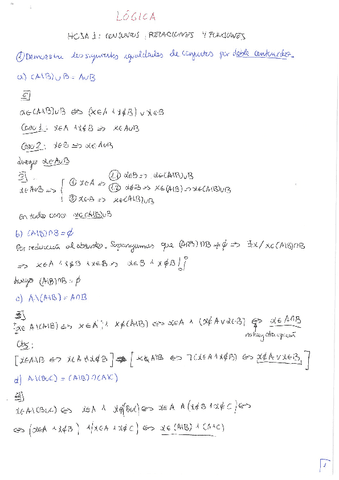 LÓGICA
HOJA 1: CONJUNTOS, RELACIONES Y FUNCIONES
① Demuestra las siguientes igualdades de conjuntos por doble contenido.
a) (A\B)∪B = A∪B
⊆
x∈(A\B)∪B ⇔ (x∈A ∧ x∉B) ∨ x∈B
Caso 1: x∈A ∧ x∉B ⇒ x∈A∪B
Caso 2: x∈B ⇒ x∈A∪B
Luego x∈A∪B
⊇
x∈A∪B ⇒ ① x∈A ⇒ 1.1 x∈B ⇒ x∈(A\B)∪B
1.2 x∉B ⇒ x∈(A\B) ⇒ x∈(A\B)∪B
② x∈B ⇒ x∈(A\B)∪B
En todo caso x∈(A\B)∪B
b) (A\B)∩B = ∅
Por reducción al absurdo. Supongamos que (A\B)∩B ≠ ∅ ⇒ ∃x / x∈(A\B)∩B
⇒ x∈A ∧ x∉B ∧ x∈B ⇒ x∈B ∧ x∉B
Luego (A\B)∩B = ∅
c) A\(A\B) = A∩B
x∈A\(A\B) ⇔ x∈A ∧ x∉(A\B) ⇔ x∈A ∧ (x∉A ∨ x∈B) ⇔ x∈A∩B
no hay otra opción
Obs:
[x∈A\B ⇔ x∈A ∧ x∉B] ⇒ [x∉A\B ⇔ ¬(x∈A ∧ x∉B) ⇔ x∉A ∨ x∈B]
d) A\(B∪C) = (A\B)∩(A\C)
x∈A\(B∪C) ⇔ x∈A ∧ x∉(B∪C) ⇔ x∈A ∧ (x∉B ∧ x∉C) ⇔
⇔ (x∈A ∧ x∉B) ∧ (x∈A ∧ x∉C) ⇔ x∈(A\B) ∩ (A\C)
1